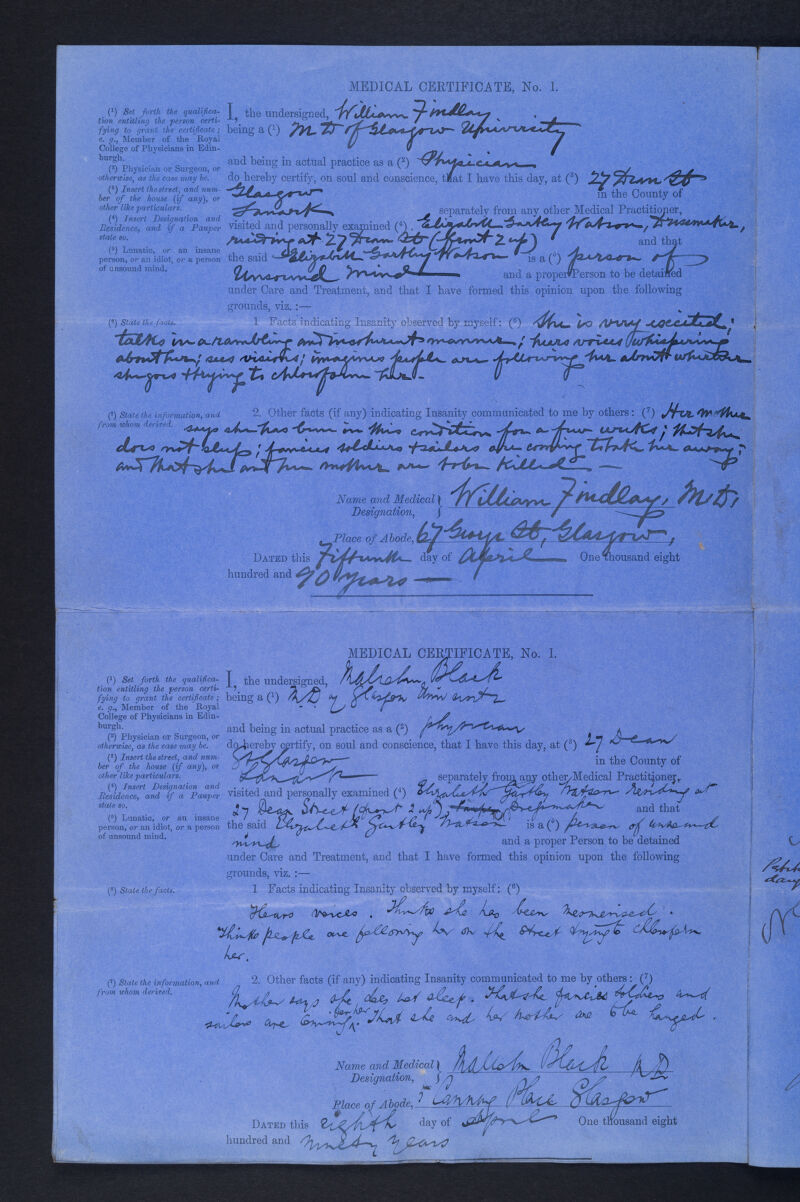 MEDICAL CERTIFICATE, No. I.
(¹) Set forth the qualifica-
tion entitling the person certi-
fying to grant the certificate;
e. g., Member of the Royal
College of Physicians in Edin-
burgh.
(²) Physician or Surgeon, or
otherwise, as the case may be.
(³) Insert the street, and num-
ber of the house (if any), or
other like particulars.
(⁴) Insert Designation and
Residence, and if a Pauper
state so.
(⁵) Lunatic, or an insane
person, or an idiot, or a person
of unsound mind.
I, the undersigned, William Findlay
being a (¹) M D of Glasgow University
and being in actual practice as a (²) Physician
do hereby certify, on soul and conscience, that I have this day, at (³) 27 Dean St
Glasgow in the County of
Lanark separately from any other Medical Practitioner,
visited and personally examined (⁴) Elizabeth Gartley Watson, Dressmaker,
residing at 27 Dean St (front 2 up) and that
the said Elizabeth Gartley Watson is a (⁵) person of
Unsound Mind and a proper Person to be detained
under Care and Treatment, and that I have formed this opinion upon the following
grounds, viz. :—
(⁶) State the facts.
1 Facts indicating Insanity observed by myself: (⁶) She is very excited;
talks in a rambling and incoherent manner; hears voices whispering
about her; sees visions; imagines people are following her about wherever
she goes & trying to chloroform her.
(⁷) State the information, and
from whom derived.
2. Other facts (if any) indicating Insanity communicated to me by others: (⁷) Her mother
says she has been in this condition for a few weeks; that she
does not sleep; fancies soldiers & sailors are coming to take her away;
and that she and her mother are to be killed
Name and Medical
Designation, William Findlay, M.D,
Place of Abode, 67 George St, Glasgow,
DATED this Fifteenth day of April One thousand eight
hundred and 90 years
MEDICAL CERTIFICATE, No. I.
(¹) Set forth the qualifica-
tion entitling the person certi-
fying to grant the certificate;
e. g., Member of the Royal
College of Physicians in Edin-
burgh.
(²) Physician or Surgeon, or
otherwise, as the case may be.
(³) Insert the street, and num-
ber of the house (if any), or
other like particulars.
(⁴) Insert Designation and
Residence, and if a Pauper
state so.
(⁵) Lunatic, or an insane
person, or an idiot, or a person
of unsound mind.
I, the undersigned, Malcolm Black
being a (¹) M.D. of Glasgow University
and being in actual practice as a (²) physician
do hereby certify, on soul and conscience, that I have this day, at (³) 27 Dean
St Glasgow in the County of
Lanark separately from any other Medical Practitioner,
visited and personally examined (⁴) Elizabeth Gartley Watson residing at
27 Dean Street (front 2 up) Dressmaker and that
the said Elizabeth Gartley Watson is a (⁵) person of unsound
mind and a proper Person to be detained
under Care and Treatment, and that I have formed this opinion upon the following
grounds, viz. :—
(⁶) State the facts.
1 Facts indicating Insanity observed by myself: (⁶)
Hears voices. Thinks she has been mesmerised.
Thinks people are following her on the street trying to chloroform
her.
(⁷) State the information, and
from whom derived.
2. Other facts (if any) indicating Insanity communicated to me by others: (⁷)
Mother says she does not sleep. That she fancies soldiers and
sailors are coming for her. That she and her mother are to be hanged.
Name and Medical
Designation, Malcolm Black M.D.
Place of Abode, Canning Place Glasgow
DATED this eighth day of April One thousand eight
hundred and ninety years